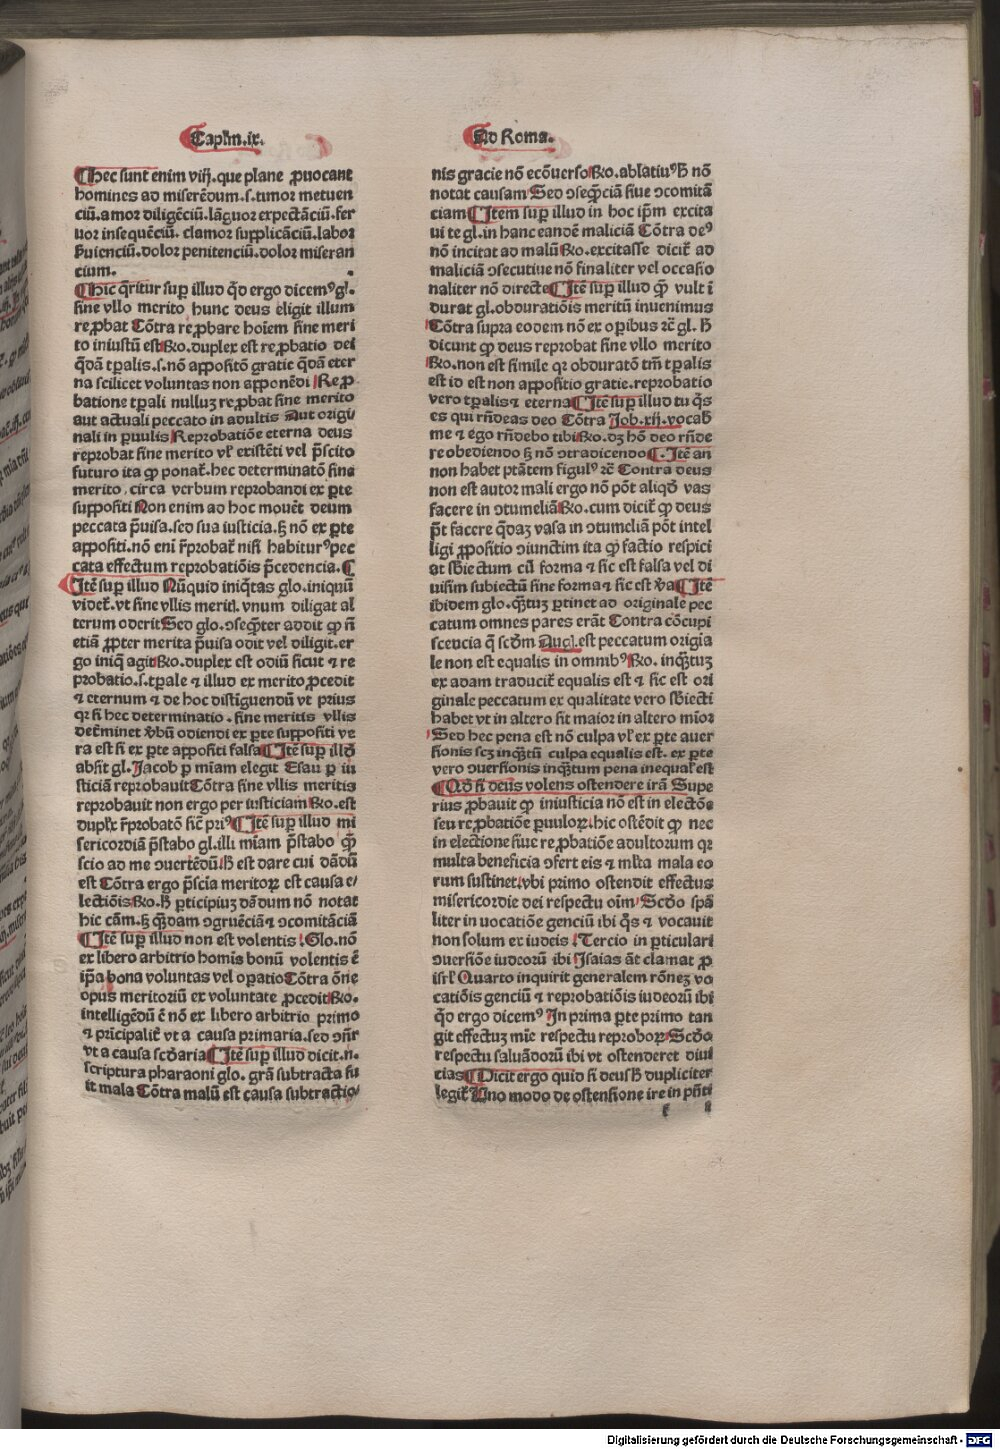 Caplm.ix.
Ad Roma.
Hec sunt enim viij. que plane ꝓuocant
homines ad miserēdum.s.timor metuen
ciū.amor diligēciū.lāguor expectāciū.fer
uor insequēciū. clamor supplicāciū.labor
ẜuienciū.dolor penitenciū.dolor miseran
cium.
Hic q̄ritur suꝑ illud q̄d ergo dicemꝰ gl.
sine vllo merito hunc deus eligit illum
reꝓbat Cōtra reꝓbare hoīem sine meri
to iniustū est Ro.duplex est reꝓbatio dei
q̄dā tꝑalis.s.nō appositō gratie q̄dā eter
na scilicet voluntas non apponēdi Reꝓ
batione tꝑali nulluꝫ reꝓbat sine merito
aut actuali peccato in adultis Aut origi
nali in ꝑuulis Reprobatiōe eterna deus
reprobat sine merito vl̓ existēti vel p̄scito
futuro ita ꝙ ponat̄.hec determinatō sine
merito, circa verbum reprobandi ex ꝑte
suppositi Non enim ad hoc mouet deum
peccata p̄uisa.sed sua iusticia.ꝫ nō ex ꝑte
appositi.nō eni r̄probat̄ nisi habiturꝰ pec
cata effectum reprobatiōis p̄cedencia.
Itē suꝑ illud Nūquid iniq̄tas glo.iniquū
videt̄.vt sine vllis merit̄. vnum diligat al̄
terum oderit Sed glo.ɔseq̄ter addit ꝙ n̄
etiā ꝓpter merita p̄uisa odit vel diligit.er
go iniq̄ agit Ro.duplex est odiū sicut ⁊ re
probatio.s.tꝑale ⁊ illud ex merito ꝓcedit
⁊ eternum ⁊ de hoc distīguendū vt prius
qr si hec determinatio.sine meritis vllis
det̄minet v̄bū odiendi ex ꝑte suppositi ve
ra est si ex ꝑte appositi falsa Itē suꝑ illd̄
absit gl.Jacob ꝑ mīam elegit Esau ꝑ iu
sticiā reprobauit Cōtra sine vllis meritis
reprobauit non ergo per iusticiam Ro.est
duplx̄ r̄probatō sic̄ priꝰ Itē suꝑ illud mi
sericordiā p̄stabo gl.illi mīam p̄stabo ꝙ̄
scio ad me ɔuertēdū.h̄ est dare cui dādū
est Cōtra ergo p̄scīa meritoꝝ est causa e/
lectiōis Ro.h̄ ꝑticipiuꝫ dādum nō notat
hic cām.ꝫ q̄dam ɔgruēciā ⁊ ɔcomitāciā
Itē suꝑ illud non est volentis Glo.nō
ex libero arbitrio homīs bonū volentis ē
ip̄a bona voluntas vel opatio Cōtra ōne
opus meritoriū ex voluntate ꝓcedit Ro.
intelligēdū ē nō ex libero arbitrio primo
⁊ pricipalit̄ vt a causa primaria.sed oñr
vt a causa scd̄aria Itē suꝑ illud dicit.n.
scriptura pharaoni glo. grā subtracta fu
it mala Cōtra malū est causa subtractio/
nis gracie nō ecōuerso Ro.ablatiuꝰ h̄ nō
notat causam Sed ɔseq̄ciā siue ɔcomitā
ciam Item suꝑ illud in hoc ip̄m excita
ui te gl.in hanc eandē maliciā Cōtra deꝰ
nō incitat ad malū Ro.excitasse dicit̄ ad
maliciā ɔsecutiue nō finaliter vel occasio
naliter nō directe Itē suꝑ illud ꝙ̄ vult ī
durat gl.obduratiōis meritū inuenimus
Cōtra supra eodem nō ex oꝑibus rc̄ gl. h̄
dicunt ꝙ deus reprobat sine vllo merito
Ro.non est simile qr obduratō tm̄ tꝑalis
est id est non appositio gratie.reprobatio
vero tꝑalis ⁊ eterna Itē suꝑ illud tu q̄s
es qui rn̄deas deo Cōtra Job.xij.vocab̄
me ⁊ ego rn̄debo tibi Ro.dꝫ hō deo rn̄de
re obediendo ꝫ nō ɔtradicendo Itē an
non habet ptātem figulꝰ rc̄ Contra deus
non est autor mali ergo nō pōt aliqd̄ vas
facere in ɔtumeliā Ro.cum dicit̄ ꝙ deus
p̄t facere q̄daꝫ vasa in ɔtumeliā pōt intel
ligi ꝓpositio ɔiunctim ita ꝙ factio respici
at sb̄iectum cū forma ⁊ sic est falsa vel di
uisim subiectū sine forma ⁊ sic est v̄a Itē
ibidem glo.q̄tuꝫ ꝑtinet ad originale pec
catum omnes pares erāt Contra cōcupi
scencia q̄ scd̄m Augl.est peccatum origīa
le non est equalis in omnibꝰ Ro. inq̄tuꝫ
ex adam traducit̄ equalis est ⁊ sic est ori
ginale peccatum ex qualitate vero sb̄iecti
habet vt in altero sit maior in altero mīor
Sed hec pena est nō culpa vl̓ ex ꝑte auer
sionis scꝫ inq̄tū culpa equalis est. ex ꝑte
vero ɔuersionis inq̄tum pena inequal̓ est
Qd̄ si deus volens ostendere irā Supe
rius ꝓbauit ꝙ iniusticia nō est in electōe
seu reꝓbatiōe ꝑuuloꝝ.hic ostēdit ꝙ nec
in electione siue reꝓbatiōe adultorum qr
multa beneficia ɔfert eis ⁊ ml̓ta mala eo
rum sustinet.vbi primo ostendit effectus
misericordie dei respectu oīm Scd̄o spā
liter in uocatiōe genciū ibi q̄s ⁊ vocauit
non solum ex iudeis Tercio in ꝑticulari
ɔuersiōe iudeorū ibi Isaias āt clamat ꝓ
isrl̓ Quarto inquirit generalem rōneꝫ vo
catiōis genciū ⁊ reprobatiōis iudeorū ibi
q̄d ergo dicemꝰ In prima ꝑte primo tan
git effectuꝫ mīe respectu reproboꝝ Scd̄o
respectu saluādorū ibi vt ostenderet diui
cias Dicit ergo quid si deus h̄ dupliciter
legit̄ Uno modo de ostensione ire in p̄nti